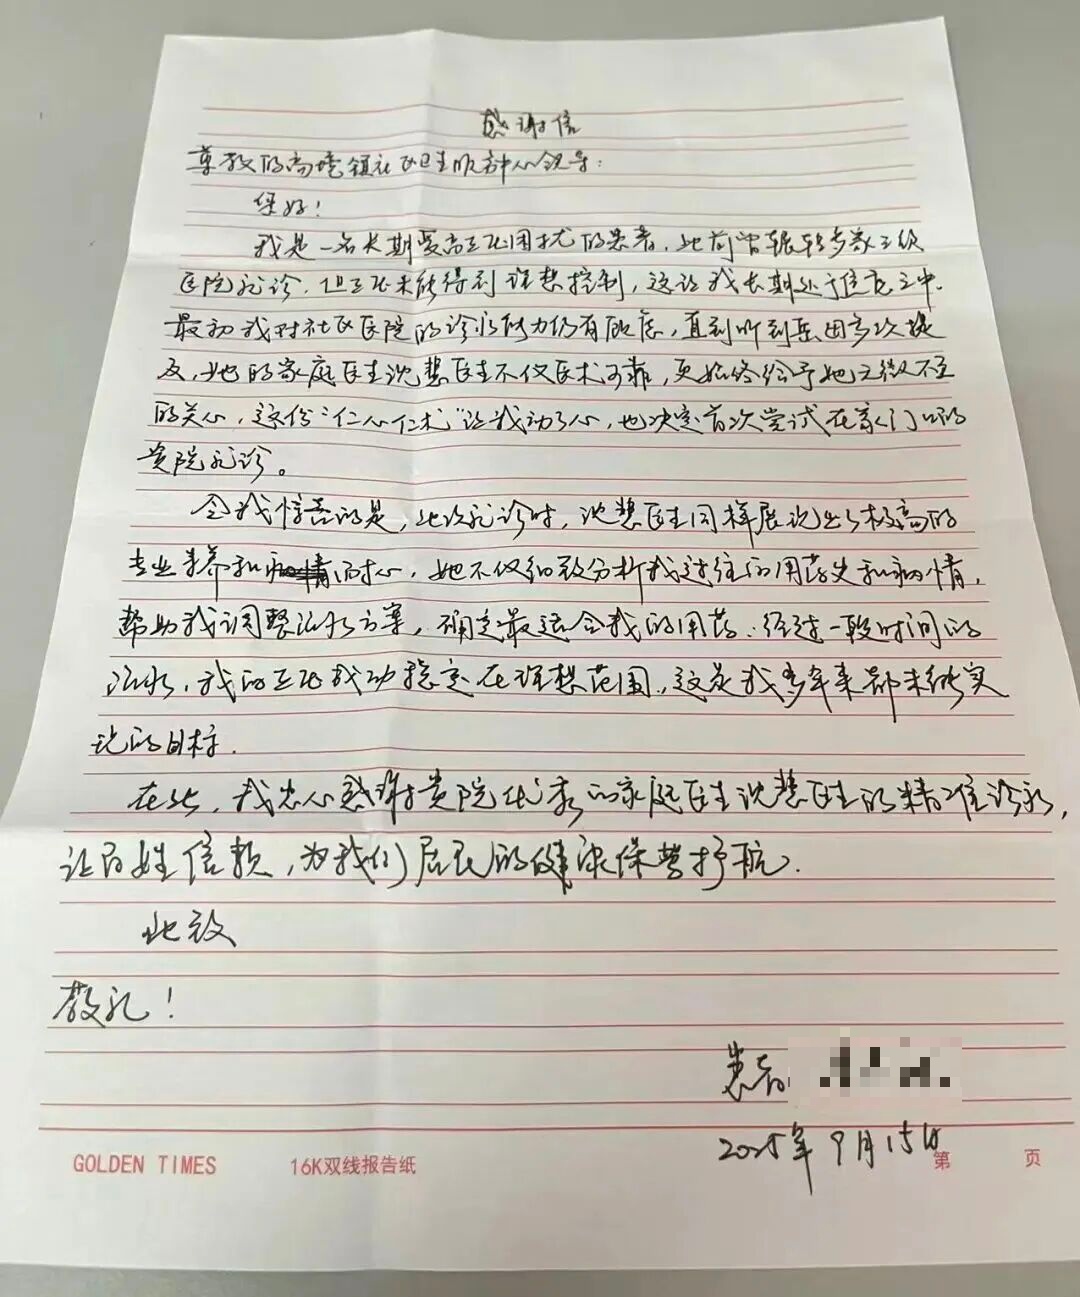 感谢信
尊敬的高境镇社区卫生服务中心领导：
您好！
我是一名长期受高血压困扰的患者，此前曾辗转多家三级
医院就诊，但血压未能得到理想控制，这让我长期处于焦虑之中。
最初我对社区医院的诊疗能力仍有顾虑，直到听到岳母多次提
及，她的家庭医生沈慧医生不仅医术可靠，更始终给予她无微不至
的关心，这份“仁心仁术”让我动了心，也决定首次尝试在家门口的
贵院就诊。
令我惊喜的是，此次就诊时，沈慧医生同样展现出了极高的
专业素养和耐心，她不仅细致分析我过往的用药史和病情，
帮助我调整治疗方案，确定最适合我的用药。经过一段时间的
治疗，我的血压成功稳定在理想范围，这是我多年来都未能实
现的目标。
在此，我衷心感谢贵院优秀的家庭医生沈慧医生的精准诊疗，
让百姓信赖，为我们居民的健康保驾护航。
此致
敬礼！
患者
2025年9月15日
GOLDEN TIMES 16K双线报告纸 第 页